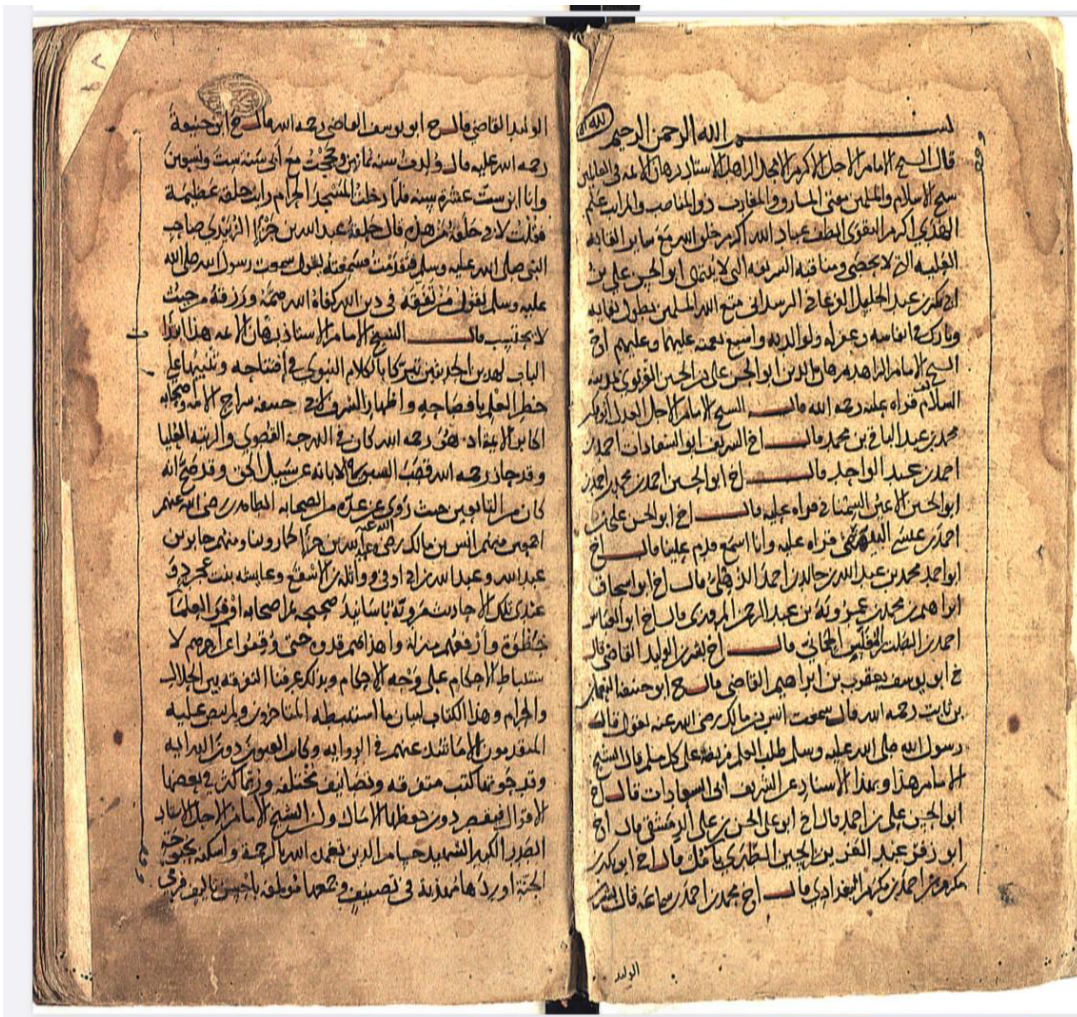 بسم الله الرحمن الرحيم
قال الشيخ الامام الاجل الاكرم الامجد الزاهد الاستاذ برهان الائمة
شيخ الاسلام والمسلمين مفتي المشارق والمغارب ذو المناقب والمراتب علم
الهدى اكرم التقوى الطف بعباد الله اكرم خلق الله مع
العليه التي لا تحصى ومناقبه الشريفه التي لا تتناهى ابو الحسن علي بن
ابي بكر بن عبد الجليل متع الله المسلمين بطول بقائه
وبارك في انفاسه وغفر له ولوالديه واسبغ نعمته عليهما وعليهم اخ
الشيخ الامام الزاهد برهان الدين ابو الحسن علي بن الحسن الغزنوي بمدينه
السلام قراه عليه رحمه الله قال الشيخ الامام الاجل العدل ابو بكر
محمد بن عبد الباقي بن محمد قال اخ الشريف ابو السعادات احمد بن
احمد بن عبد الواحد قال اخ ابو الحسين احمد بن محمد بن احمد
ابو الحسين قراه عليه قال اخ ابو الحسن علي بن
احمد بن عيسى قراه عليه وانا اسمع قدم علينا قال اخ
ابو احمد محمد بن عبد الله بن خالد بن احمد الذهلي قال اخ ابو اسحاق
ابراهيم بن محمد بن عمرويه بن عبد الرحمن المروزي قال اخ ابو العباس
احمد بن الصلت الحماني قال اخ بشر بن الوليد القاضي قال
خ ابو يوسف يعقوب بن ابراهيم القاضي قال خ ابو حنيفه النعمان
بن ثابت رحمه الله قال سمعت انس بن مالك رضي الله عنه يقول قال
رسول الله صلى الله عليه وسلم طلب العلم فريضة على كل مسلم قال الشيخ
الامام هذا وبهذا الاسناد عن الشريف ابي السعادات قال اخ
ابو الحسن علي بن احمد قال اخ ابو علي الحسن بن علي الدمشقي قال اخ
ابو زفر عبد العزيز بن الحسن الطبري بآمل قال اخ ابو بكر
مكرم بن احمد بن مكرم البغدادي قال اخ محمد بن احمد بن سماعه قال بشر بن
الوليد
الوليد القاضي قال خ ابو يوسف القاضي رحمه الله قال خ ابو حنيفة
رحمه الله عليه قال ولدت سنه ثمانين وحججت مع ابي سنة ست وتسعين
وانا ابن ست عشرة سنه فلما دخلت المسجد الحرام رايت حلقه عظيمة
فقلت لابي حلقة من هذه قال حلقة عبد الله بن جزء الزبيدي صاحب
النبي صلى الله عليه وسلم فتقدمت فسمعته يقول سمعت رسول الله صلى الله
عليه وسلم يقول من تفقه في دين الله كفاه الله همه ورزقه من حيث
لا يحتسب قال الشيخ الامام الاستاذ برهان الائمه هذا ابتدا
الباب بهذين الحديثين تبركا بالكلام النبوي في افتتاحه وتنبيها على
خطر العلم بافصاحه واظهارا لشرف ابي حنيفه سراج الامه وصحابه
رحمه الله كان في الدرجة القصوى والرتبه العليا
وقد حاز رحمه الله قصب السبق بالابانه عن سبيل الحق وقد صح انه
كان من التابعين حيث روى عن عدة من الصحابه رضي الله عنهم
اجمعين منهم انس بن مالك رضي الله عنه وعبد الله بن جزء كما روينا ومنهم جابر بن
عبد الله وعبد الله بن ابي اوفى وواثلة بن الاسقع وعايشه بنت عجرد
عندي تلك الاحاديث مرويه باسانيد صحيحه ثم اصحابه اوفى العلما
حظوة وارفعهم منزلة
ستنباط الاحكام على وجه الاحكام وبذلك عرفنا التفرقه بين الحلال
والحرام وهذا الكتاب لبيان ما استنبطه المتاخرون ولم ينص عليه
المتقدمون الا ما شذ عنهم في الروايه
وقد جوتها كتب متفرقه وتصانيف مختلفه وربما كثر في بعضها
الاقوال فيقصر دون حفظها وان الشيخ الامام الاجل الاستاذ
الصدر الكبير الشهيد حسام الدين تغمده الله بالرحمة واسكنه بحبوحة
الجنة اوردها مهذبة في تصنيف وجمعها مؤلفه باحسن تاليف